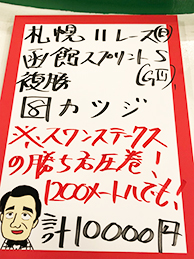 札幌11レース(日)
函館スプリントS
複勝 (GⅢ)
カツジ
※スワンステークス
の勝ち方圧巻!
1200メートルでも!
計10000円